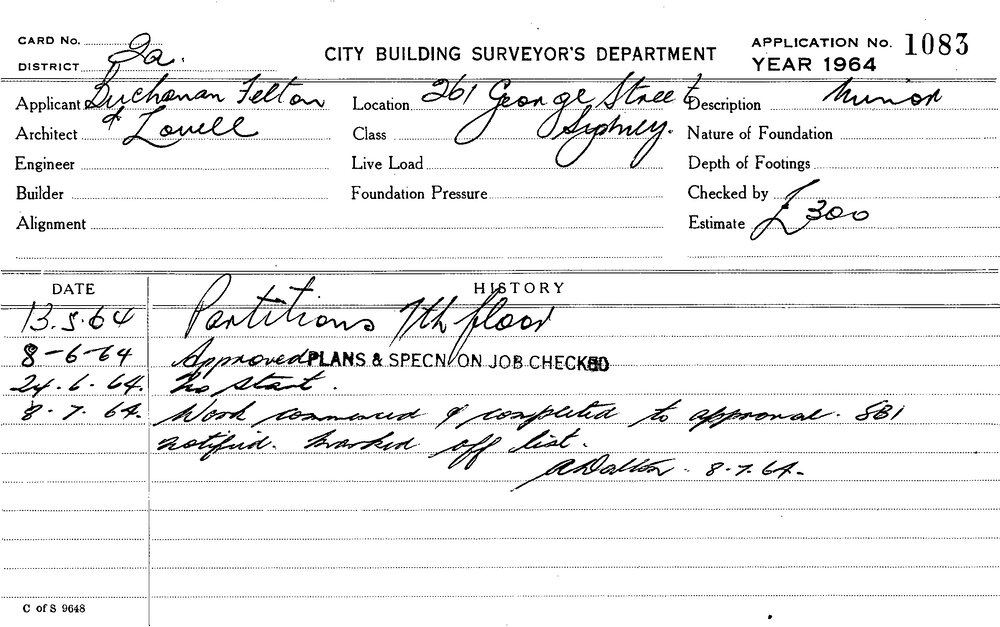 CARD No.
DISTRICT 2a.
CITY BUILDING SURVEYOR'S DEPARTMENT
APPLICATION No. 1083
YEAR 1964
Applicant Buchanan Felton
Location 261 George Street
Description Minor
Architect & Lovell
Class Sydney.
Nature of Foundation
Engineer
Live Load
Depth of Footings
Builder
Foundation Pressure
Checked by
Alignment
Estimate £300
DATE HISTORY
13.5.64 Partitions 7th floor
8-6-64 Approved PLANS & SPECN ON JOB CHECKED
24.6.64. No start.
8.7.64. Work commenced & completed to approval. SBI
notified. Marked off list.
A Dalton. 8.7.64.
C of S 9648